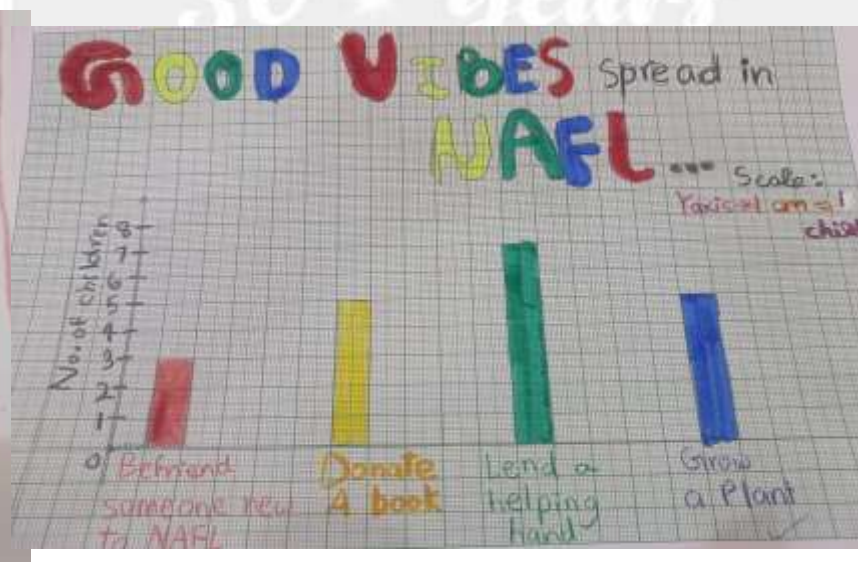 30+ Years
GOOD VIBES spread in
NAFL...
Scale:
Yaxis→1 cm = 1
child
No. of children
8
7
6
5
4
3
2
1
0
Befriend
someone new
to NAFL
Donate
A book
Lend a
helping
hand
Grow
a Plant